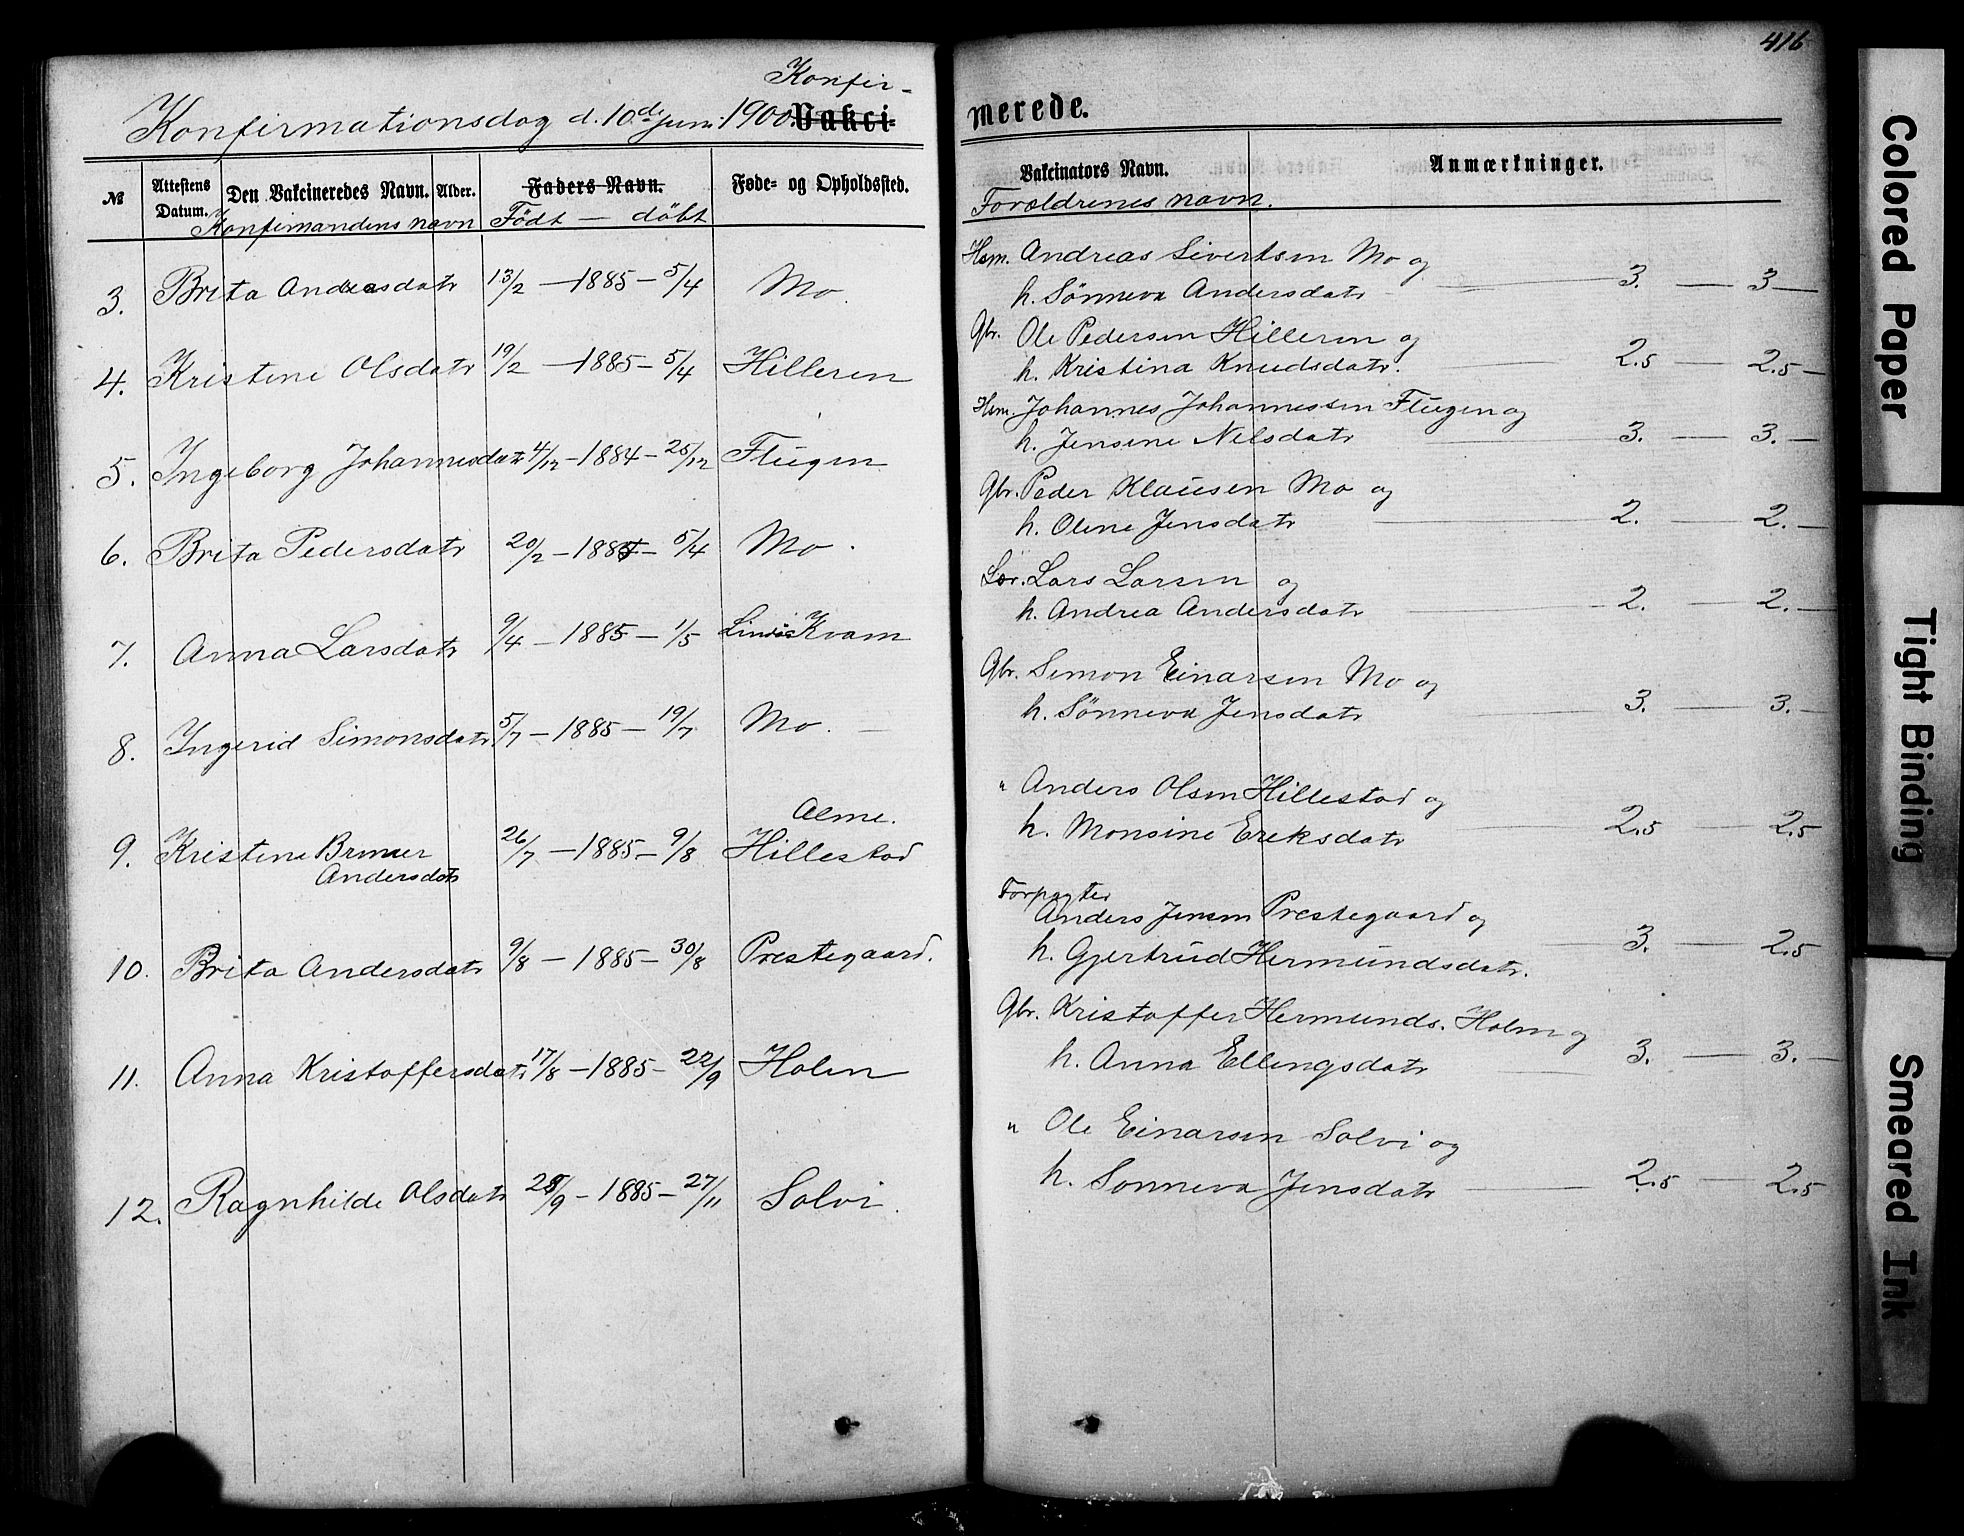 416
Konfir-
Konfirmationsdag d. 10de Juni 1900. Vakci-
merede.
№ Attestens Datum. Den Vakcineredes Navn. Alder. Faders Navn. Føde- og Opholdssted.
Vakcinators Navn. Anmærkninger.
Konfirmandens navn Födt — döbt
Forældrenes navn.
3. Brita Andersdatr 13/2 — 1885 — 5/4 Mo.
Hsm. Andreas Sivertsen Mo og
h. Sönneva Andersdatr 3. — 3 —
4. Kristine Olsdatr 19/2 — 1885 — 5/4 Hilleren
Gbr. Ole Pedersen Hilleren og
h. Kristina Knudsdatr. 2.5 — 2.5 —
5. Ingeborg Johannesdatr 4/12 — 1884 — 25/12 Flugen
Hsm. Johannes Johannessen Flugen og
h. Jensine Nilsdatr 3. — 3. —
6. Brita Pedersdatr 20/2 — 1885 — 5/4 Mo.
Gbr. Peder Klausen Mo og
h. Oline Jensdatr 2. — 2. —
7. Anna Larsdatr 9/4 — 1885 — 1/5 Kvam
Lars Larsen og
h. Andrea Andersdatr 2. — 2. —
8. Ingerid Simonsdatr 5/7 — 1885 — 19/7 Mo. —
Gbr. Simon Einarsen Mo og
h. Sönneva Jensdatr 3. — 3. —
Alme.
9. Kristine Andersdatr 26/7 — 1885 — 9/8 Hillestad
" Anders Olsen Hillestad og
h. Monsine Eriksdatr 2.5 — 2.5
10. Brita Andersdatr 9/8 — 1885 — 30/8 Prestegaard.
Forpagter
Anders Jensen Prestegaard og
h. Gjertrud Hermundsdatr. 3. — 2.5
11. Anna Kristoffersdatr 17/8 — 1885 — 22/9 Holen
Gbr. Kristoffer Hermunds. Holen og
h. Anna Ellingsdatr 3. — 3. —
12. Ragnhilde Olsdatr 28/9 — 1885 — 27/11 Solvi.
" Ole Einarsen Solvi og
h. Sonneva Jensdatr 2.5 — 2.5
Colored Paper
Tight Binding
Smeared Ink